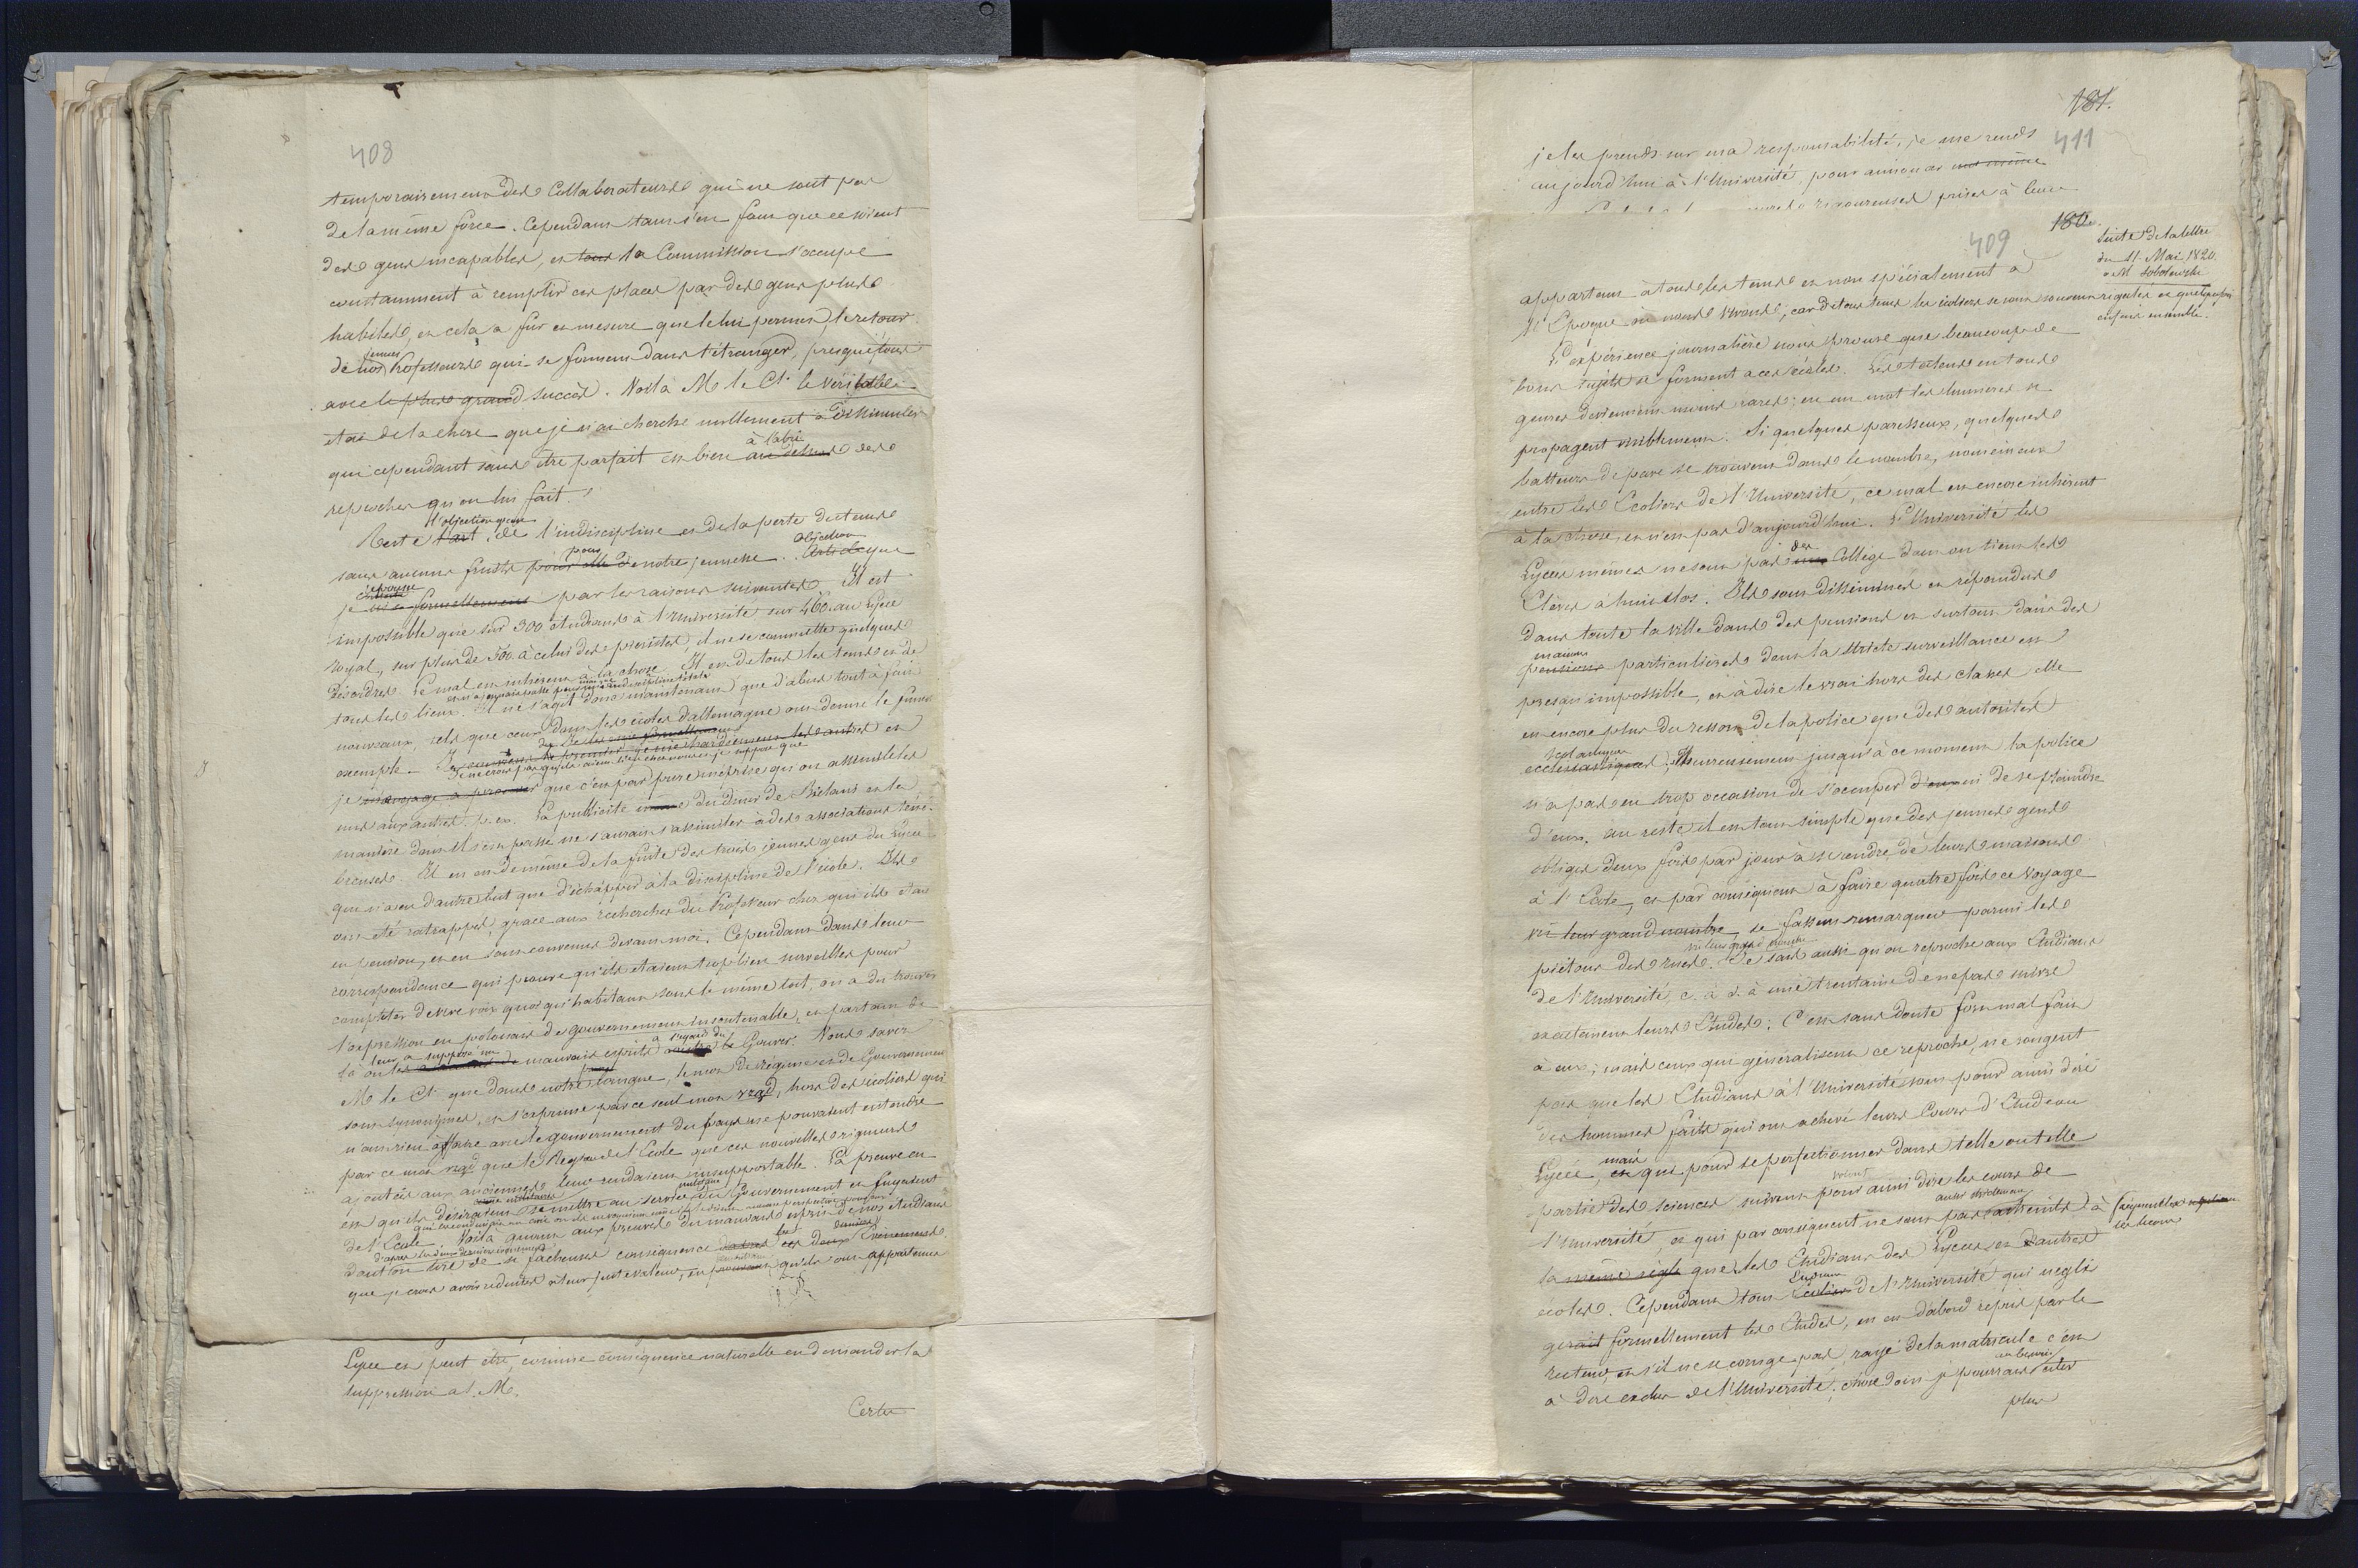 408
temporairement des Collaborateurs qui ne sont pas
de la même force. Cependant tant s'en faut que ce soient
des gens incapables, et tous la Commission s'occupe
constamment à remplir ces places par des gens plus
habiles, et cela a fur et mesure que le lui permet le retour
de nos jeunes Professeurs qui se forment dans l'étranger, presque tous
avec le plus grand succès. Voila M. le Ct. le véritable
état de la chose que je n'ai cherché nullement à dissimuler
qui cependant sans être parfait est bien à l'abri au dessus des
reproches qu'on lui fait.
Reste l'objection l'art. de l'indiscipline et de la perte du tems
sans aucun fruit pour notre jeunesse. objection Article que
je par les raisons suivantes Il est
impossible que sur 300 étudians à l'Université sur 460. au Lycée
royal, sur plus de 500. à celui des piaristes, il ne se commette quelques
désordres. Le mal est inhérent à la chose. Il est de tout les tems et de
tous les lieux. Il ne s'agit donc maintenant que d'abus tout à fait
nouveaux, tels que ceux dont les écoles d'allemagne ont donné le funeste
exemple.
je que c'est par pure méprise qu'on assimile les
uns aux autres. p. ex. La publicité du diner de Bielani et la
manière dont il s'est passé ne sauraient s'assimiler à des associations téné-
breuses. Il en est de même de la fuite des trois jeunes gens du Lycée
qui n'a eu d'autre but que d'échapper à la discipline de l'école. Ils
ont été ratrappés, grace aux recherches du Professeur chez qui ils étaient
en pension, et en sont convenus devant moi. Cependant dans leur
correspondance qui prouve qu'ils étaient trop bien surveillés pour
compléter de vive voix quoiqu'habitant sous le même toit, on a du trouver
l'expression en polonais de gouvernement insoutenable, et partant de
là on leur a supposé un mauvais esprit à l'égard du Gouver. Vous savez
M. le Ct. que dans notre langue, le mot de régime et de Gouvernement
sont synonymes, et s'exprime par ce seul mot rząd, hors des écoliers qui
n'ont rien affaire avec le gouvernement du pays ne pouvaient entendre
par ce mot rząd que le Régime de l'Ecole que ces nouvelles rigueurs
ajoutées aux anciennes leur rendaient insupportable. La preuve en
est qu'ils desiraient se mettre au service militaire du Gouvernement et fuyaient
de l'Ecole. Voila quant aux preuves du mauvais esprit de nos étudians
dont on tire de si facheuses conséquence
que je crois avoir réduites à leur juste valeur, en qu'ils ont appartenu
Lycée et peut être, comme conséquence naturelle en demander la
suppression à S. M.
Certes
181.
411
je les prends sur ma responsabilité, je me rends
aujourd'hui à l'Université, pour annoncer
rigoureuses prises à leur
180.
409
Suite de la lettre
du 11. Mai 1820.
à M. Sobolewski
appartenu à tous les tems et non spécialement à
l'Epoque où nous vivons; car de tous tems les écoliers se sont souvent régalés et quelquefois
enfuis ensemble.
L'expérience journalière nous prouve que beaucoup de
bons sujets se forment à ces écoles. Les talens en tous
genres deviennent moins rares, en un mot les lumières se
propagent visiblement. Si quelques paresseux, quelques
batteurs de pavé se trouvent dans le nombre, nommément
entre les Ecoliers de l'Université, ce mal est encore inhérent
à la chose, et n'est pas d'aujourd'hui. L'Université les
Lycées mêmes ne sont pas des Collèges dont on tient les
Elèves à huis clos. Ils sont disséminés et répandus
dans toute la ville dans des pensions et surtout dans des
maisons pensions particulières dont la stricte surveillance est
presqu'impossible, et à dire le vrai hors des classes elle
est encore plus du ressort de la police que des autorités
scolastiques ecclésiastiques, Heureusement jusqu'à ce moment la police
n'a pas eu trop occasion de s'occuper d'eux ni de se plaindre
d'eux, au reste il est tout simple que des jeunes gens
obligés deux fois par jour à se rendre de leurs maisons
à l'Ecole, et par conséquent à faire quatre fois ce voyage
vu leur grand nombre se fassent remarquer parmi les
piétons des rues. vu leur grand nombre Je sais aussi qu'on reproche aux Etudians
de l'Université, c. à d. à une trentaine de ne pas suivre
exactement leurs Etudes: C'est sans doute fort mal fait
à eux; mais ceux qui généralisent ce reproche, ne songent
pas que les Etudians à l'Université sont pour ainsi dire
des hommes faits qui ont achevé leurs Cours d'Etude au
Lycée, mais et qui pour se perfectionner dans telle ou telle
partie des sciences suivent pour ainsi dire les cours de
l'Université, et qui par conséquent ne sont pas astreints à fréquenter
les leçons
la même règle que les Etudians des Lycées et d'autres
écoles. Cependant tout Etudiant Ecolier de l'Université qui négli
gerait formellement les Etudes, en est d'abord repris par le
recteur, et s'il ne se corrige pas, rayé de la matricule c'est
à dire exclus de l'Université; chose dont je pourrais au besoin citer
plus